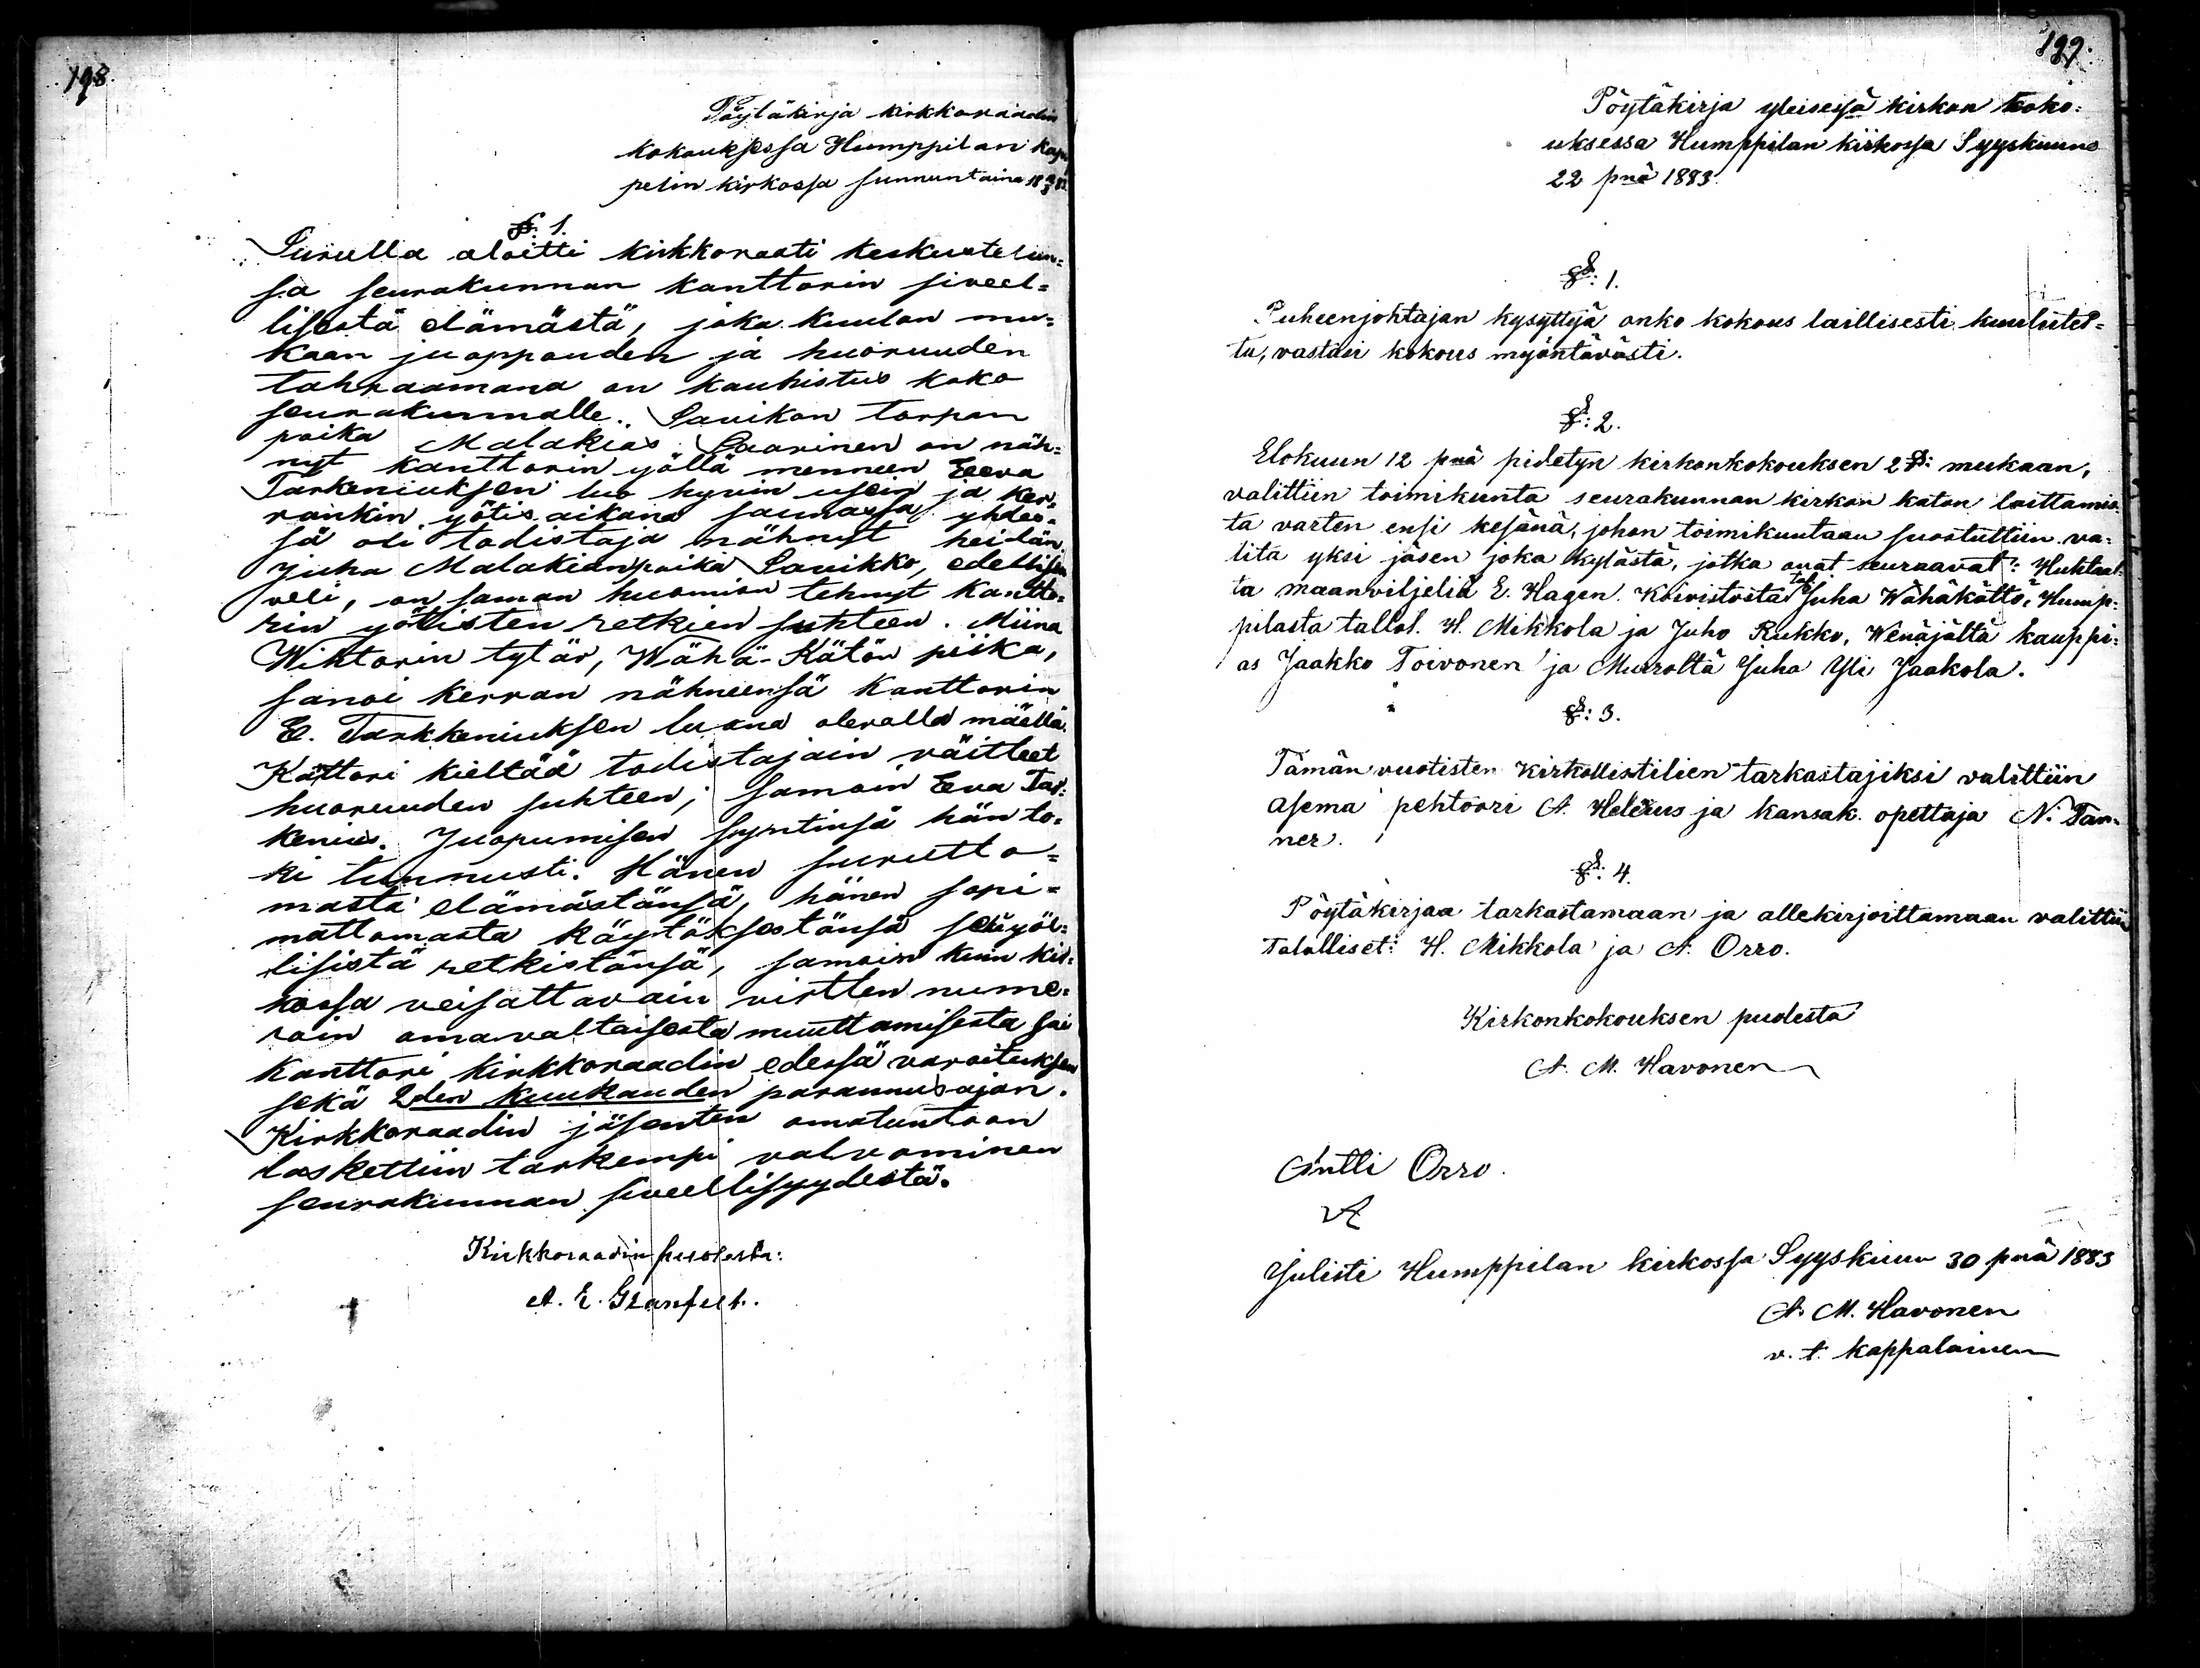 198.
Pöytäkirja kirkkoraadin
kokouksessa Humppilan kap
pelin kirkossa sunnuntaina 18
§: 1.
Surulla aloitti kirkkoraati keskustelun=
sa seurakunnan kanttorin siveel=
lisestä elämästä, joka kuulon mu=
kaan juoppouden ja huoruuden
tahraamana on kauhistus koko
seurakunnalle. Sauikon torpan
poika Malakias Saarinen on näh=
nyt kanttorin yöllä menneen Eeva
Tarkeniuksen luo hyvin usein ja ker=
rankin yötis aikana saunassa yhdes=
sä oli todistaja nähnyt heidän
Juha Malakianpoika Sauikko, edellisen
veli, on saman huomion tehnyt kantto=
rin yöllisten retkien suhteen. Miina
Wiktorin tytär, Wähä-Kätön piika,
sanoi kerran nähneensä kanttorin
E. Tarkkeniuksen luona olevalla mäellä.
Kattori kieltää todistajain väitteet
huoruuden suhteen; samoin Eeva Tar=
kenius. Juopumisen syntinsä hän to=
ki tunnusti. Hänen surutto=
masta elämästänsä, hänen sopi=
mattomasta käytöksestänsä sekä yöl=
lisistä retkistänsä, samoin kuin kir=
kossa veisattavain virtten nume=
roin omavaltaisesta muuttamisesta sai
kanttori kirkkoraadin edessä varoituksen
sekä 2den kuukauden parannusajan.
Kirkkoraadin jäsenten omatuntoon
laskettiin tarkempi valvominen
seurakunnan siveellisyydestä.
Kirkkoraadin puolesta:
A. E. Granfelt.
199.
Pöytäkirja yleisessä kirkon koko=
uksessa Humppilan kirkossa Syyskuuno
22 pnä 1883.
§: 1.
Puheenjohtajan kysyttyä onko kokous laillisesti kuulutet=
tu, vastasi kokous myöntävästi.
§: 2.
Elokuun 12 pnä pidetyn kirkonkokouksen 2 §: mukaan,
valittiin toimikunta seurakunnan kirkon katon laittamis=
ta varten ensi kesänä, johon toimikuntaan suostuttiin va=
lita yksi jäsen joka kylästä, jotka ovat seuraavat: Huhtaal=
ta maanviljeliä E. Hagen. Koivistosta tal. Juha Wähäkättö, Hump=
pilasta tallol. H. Mikkola ja Juho Rukko, Wenäjältä kauppi=
as Jaakko Toivonen ja Murroltä Juha Yli Jaakola.
§: 3.
Tämän vuotisten kirkollistilien tarkastajiksi valittiin
asema pehtoori A. Helenius ja kansak. opettaja N. Tan=
ner.
§: 4.
Pöytäkirjaa tarkastamaan ja allekirjoittamaan valittiin
talolliset: H. Mikkola ja A. Orro.
Kirkonkokouksen puolesta
A. M. Havonen
Antti Orro.
Julisti Humppilan kirkossa Syyskuun 30 pnä 1883
A. M. Havonen
v. t. kappalainen